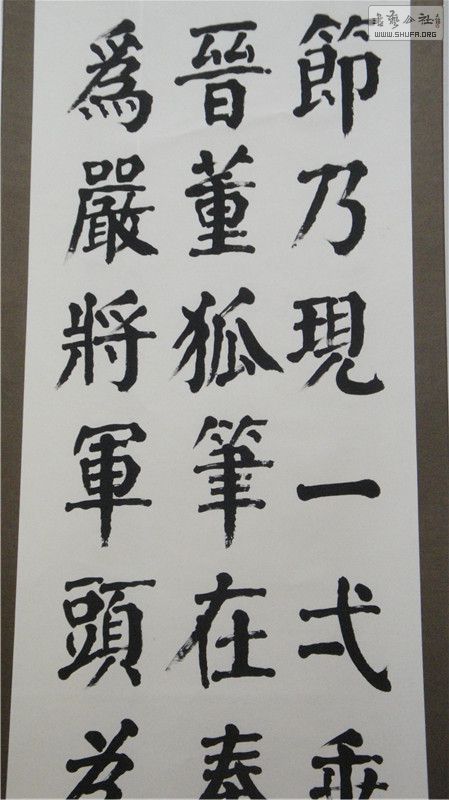 節乃現一弌垂
晉董狐筆在秦
為嚴將軍頭為
書藝公社
WWW.SHUFA.ORG